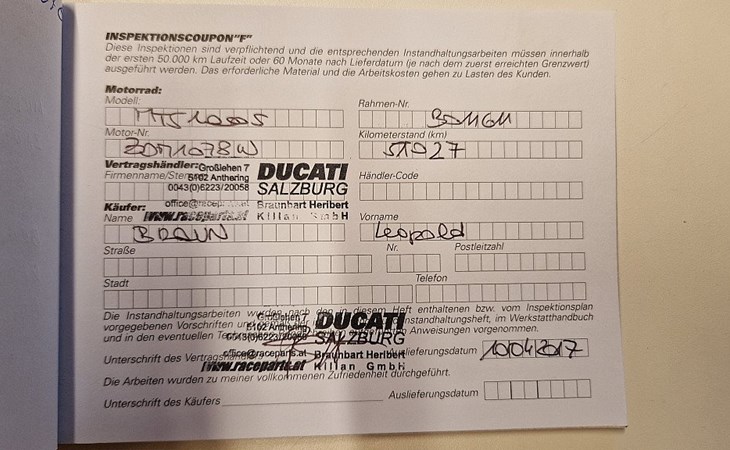 INSPEKTIONSCOUPON"F"
Diese Inspektionen sind verpflichtend und die entsprechenden Instandhaltungsarbeiten müssen innerhalb
der ersten 50.000 km Laufzeit oder 60 Monate nach Lieferdatum (je nach dem zuerst erreichten Grenzwert)
ausgeführt werden. Das erforderliche Material und die Arbeitskosten gehen zu Lasten des Kunden.
Motorrad:
Modell:
MTS1000S
Rahmen-Nr.
Motor-Nr.
Kilometerstand (km)
51027
Vertragshändler:
Großlehen 7
5102 Anthering
0043(0)6223/20058
DUCATI
SALZBURG
Firmenname/
Händler-Code
office@raceparts.at
www.raceparts.at
Braunbart Heribert
Kilian GmbH
Käufer:
Name
BRAUN
Vorname
Leopold
Straße
Nr.
Postleitzahl
Stadt
Telefon
Die Instandhaltungsarbeiten wurden nach den in diesem Heft enthaltenen bzw. vom Inspektionsplan
vorgegebenen Vorschriften und Instandhaltungsheft, im Werkstatthandbuch
und in den eventuellen Anweisungen vorgenommen.
Großlehen 7
5102 Anthering
0043(0)6223/20058
DUCATI
SALZBURG
office@raceparts.at
www.raceparts.at
Braunbart Heribert
Kilian GmbH
Unterschrift des Vertragshändlers
Auslieferungsdatum
10042017
Die Arbeiten wurden zu meiner vollkommenen Zufriedenheit durchgeführt.
Unterschrift des Käufers
Auslieferungsdatum